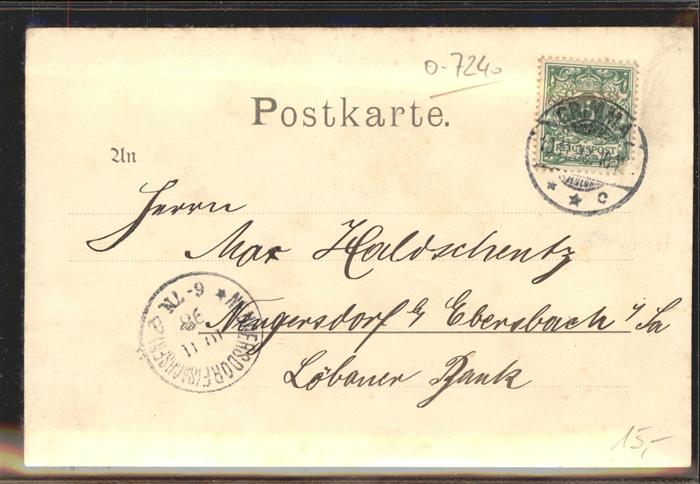 0-7240
Postkarte.
GRIMMA
REICHSPOST
An
Herrn
Max Haldschentz
Neugersdorf b/ Ebersbach i/ Sa
Löbauer Bank
NEUGERSDORF (SACHSEN)
6-7N
98
11
c
15,-